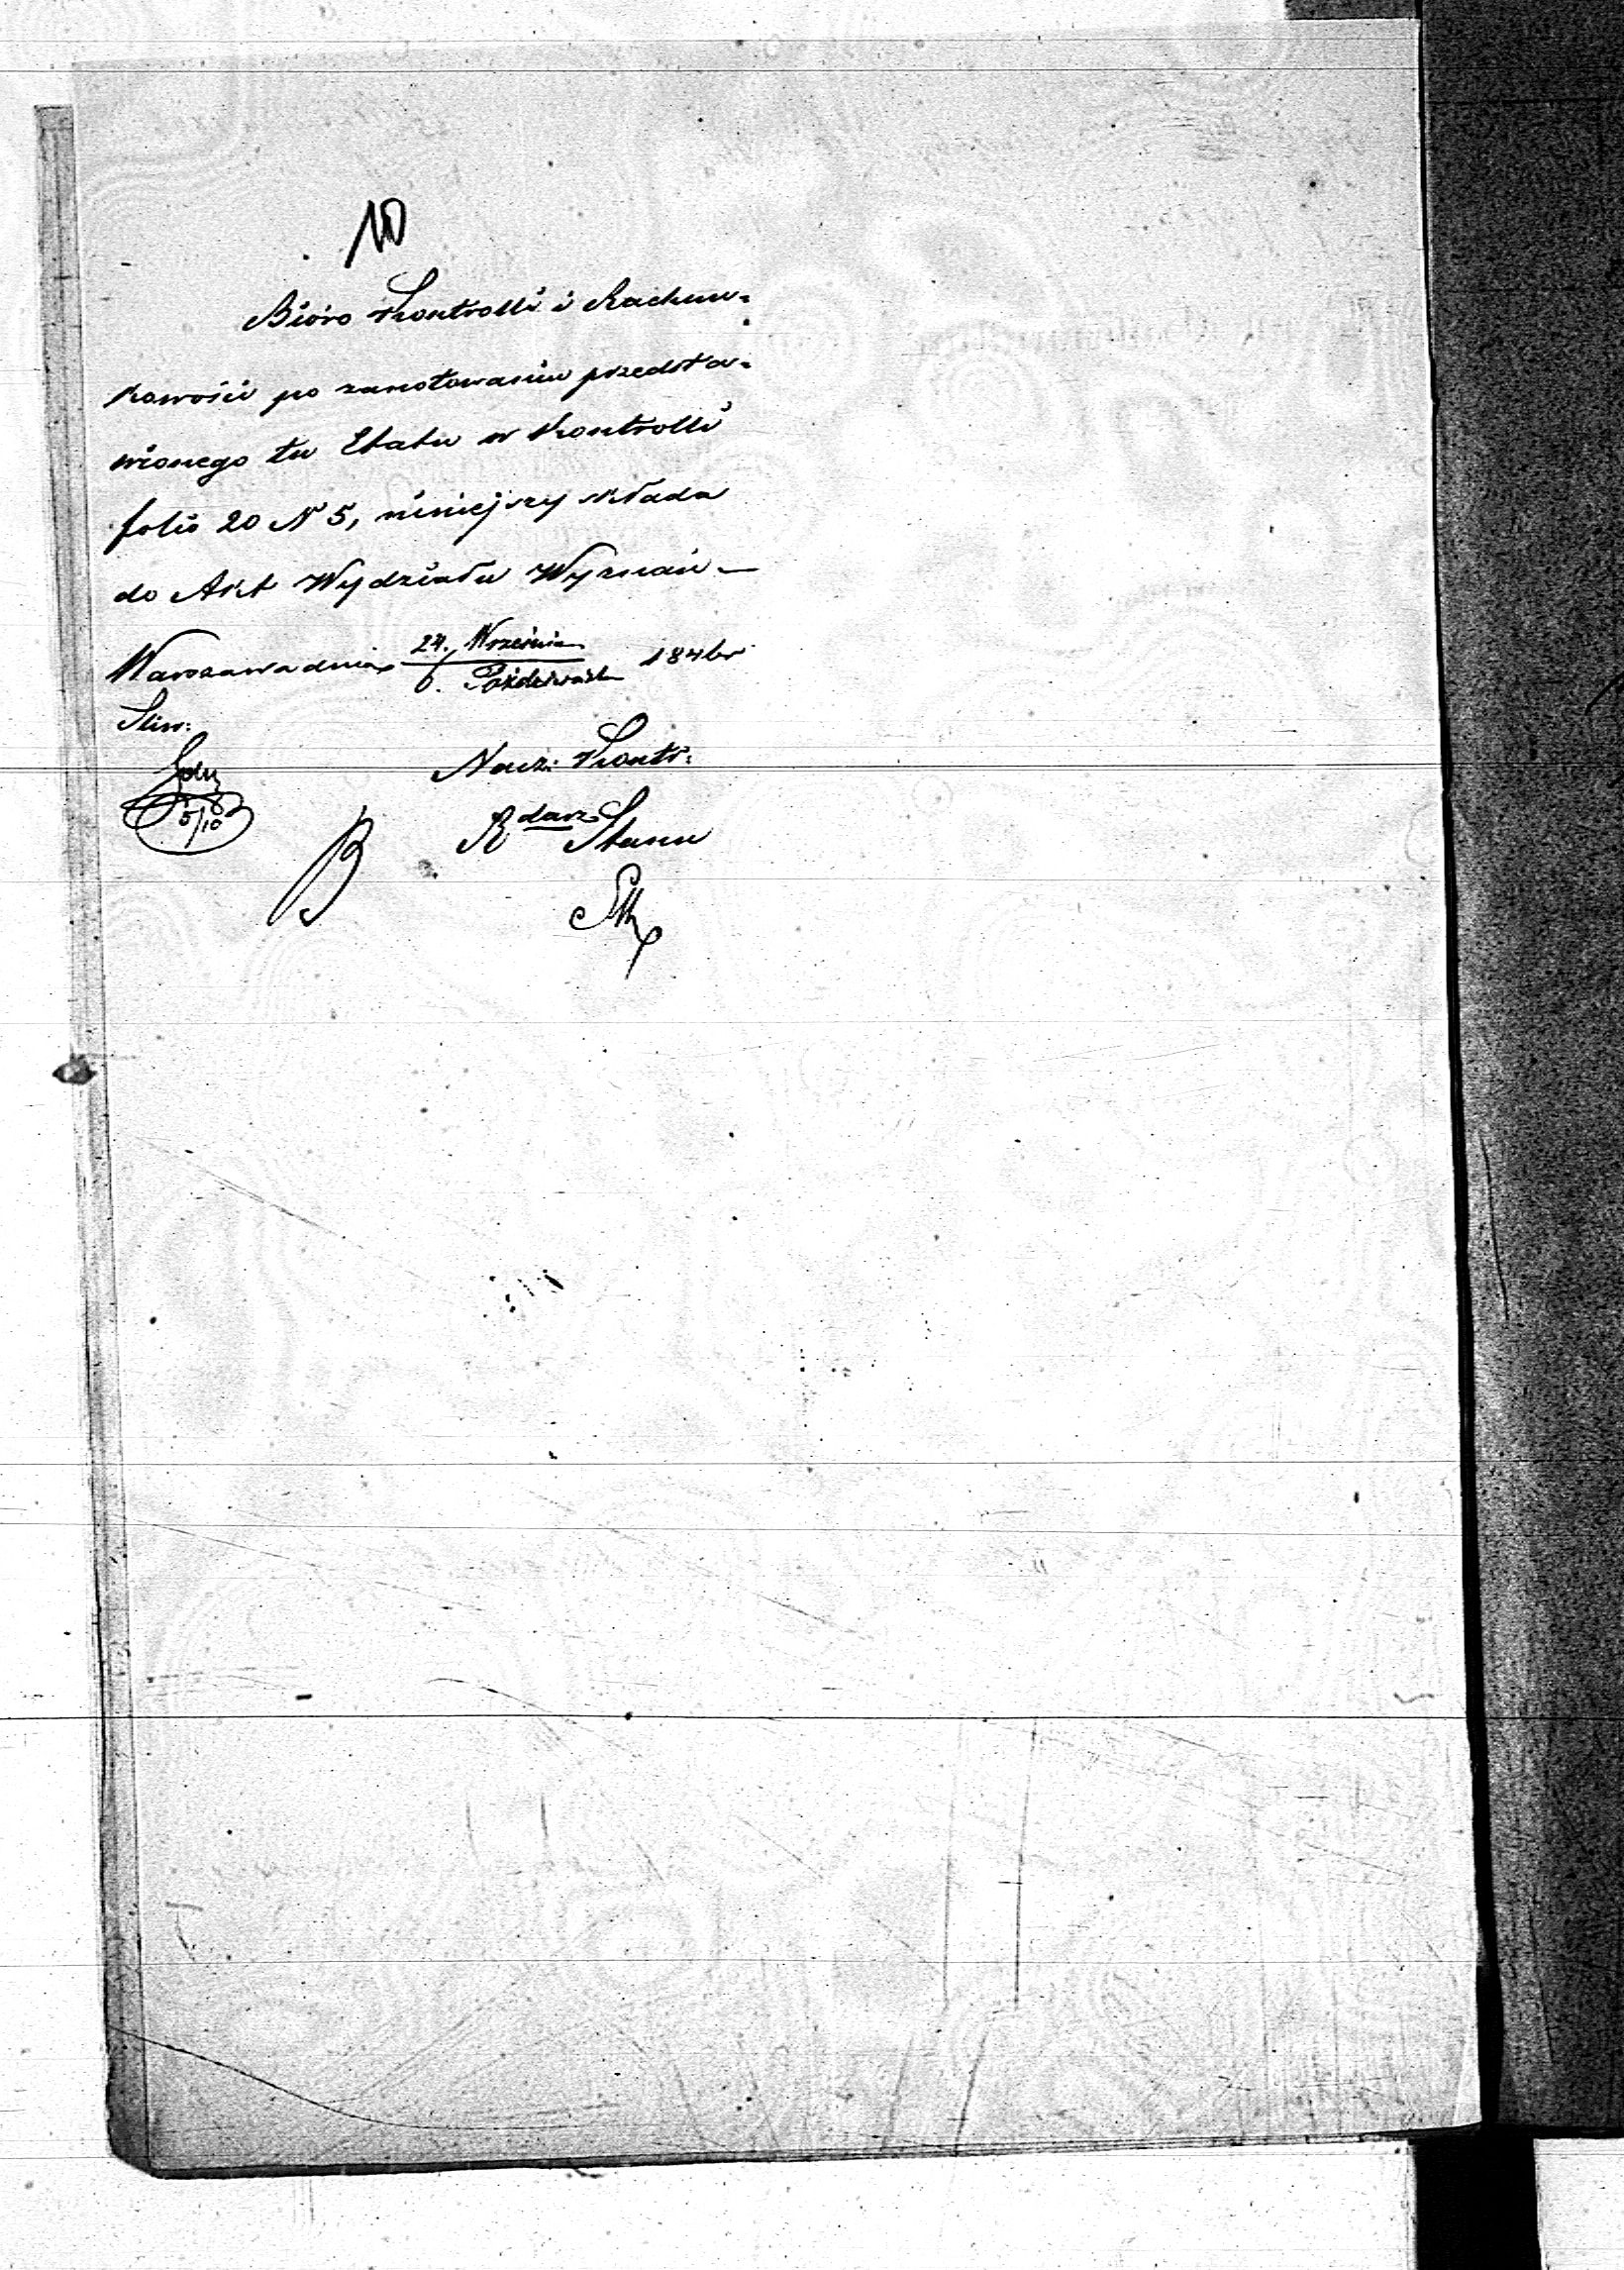 10
Bióro Kontrolli i Rachun=
kowości po zanotowaniu przedsta=
wionego tu Etatu w Kontrolli
folio 20 N 5, niniejszy składa
do Akt Wydziału Wyznań —
Warszawa dnia 24. Września 1846 r
6. Października
Sliw:
Nacz: Kontr:
5/10
R darz Stanu